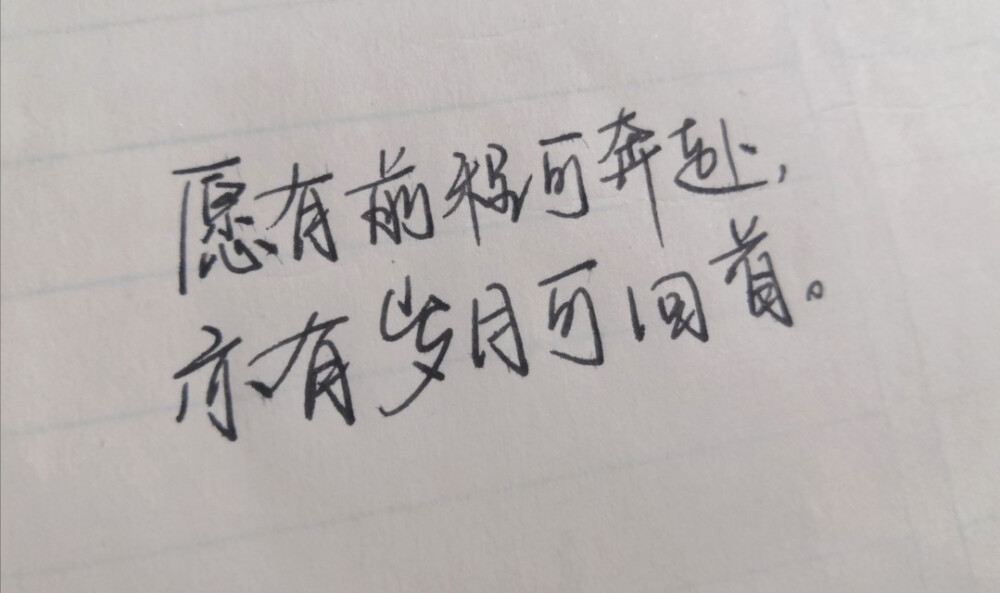 愿有前程可奔赴,
亦有岁月可回首。